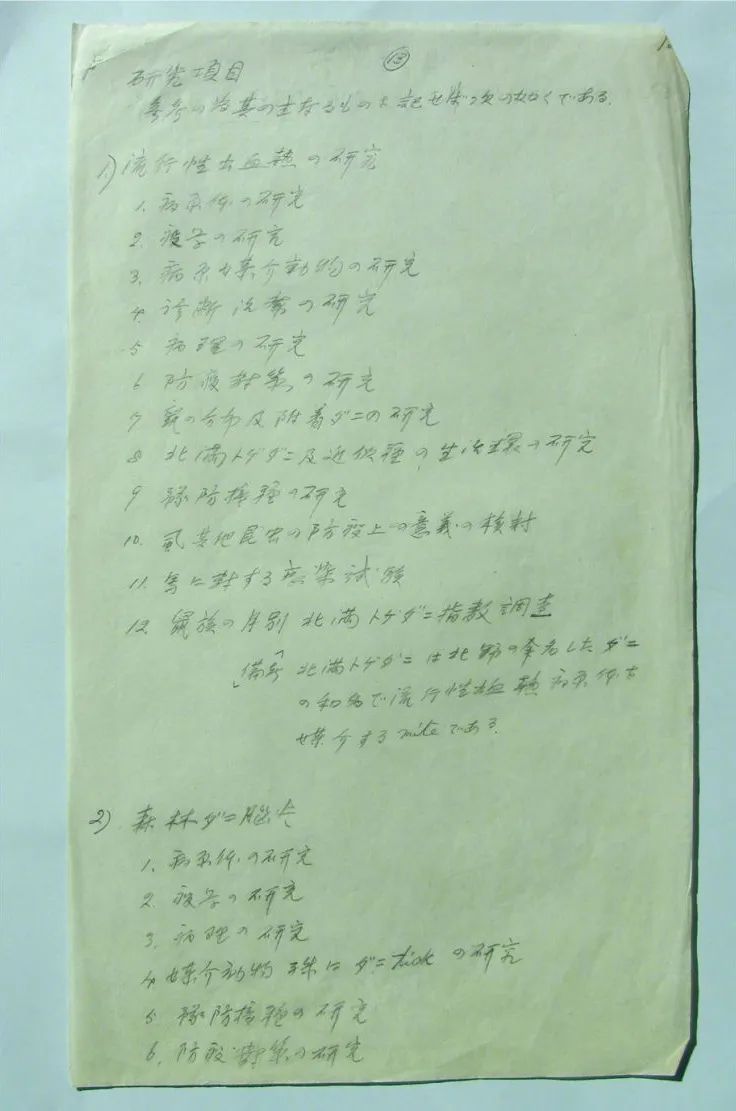 ⑬
研究項目
参考の為其の主なるものを記せば次の如くである.
1) 流行性出血熱の研究
1. 病原体の研究
2. 疫学の研究
3. 病原媒介動物の研究
4. 診断治療の研究
5 病理の研究
6 防疫対策の研究
7 鼠の分布及附着ダニの研究
8 北満トゲダニ及近似種の生活環の研究
9 予防接種の研究
10. 虱其他昆虫の防疫上の意義の検討
11. 馬に対する感染試験
12. 鼠族の月別北満トゲダニ指数調査
「備考」北満トゲダニは北野の命名したダニ
の和名で流行性出血熱病原体を
媒介するmiteである.
2) 森林ダニ脳炎
1. 病原体の研究
2. 疫学の研究
3. 病理の研究
4 媒介動物 殊にダニtickの研究
5 予防接種の研究
6. 防疫対策の研究